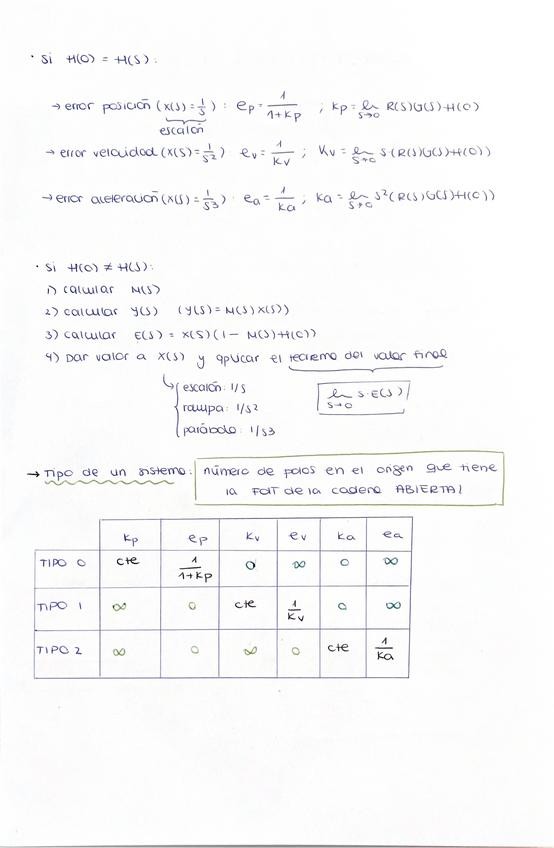 · Si H(0) = H(s):
→ error posición (X(s)=1/s): ep = 1/(1+Kp) ; Kp = lim s→0 R(s)G(s)·H(0)
escalón
→ error velocidad (X(s)=1/s²): ev = 1/Kv ; Kv = lim s→0 s·(R(s)G(s)H(0))
→ error aceleración (X(s)=1/s3): ea = 1/Ka ; Ka = lim s→0 s²(R(s)G(s)H(0))
· Si H(0) ≠ H(s):
1) calcular M(s)
2) calcular Y(s) (Y(s)=M(s)X(s))
3) calcular E(s) = X(s)(1 - M(s)H(0))
4) Dar valor a X(s) y aplicar el teorema del valor final
escalón: 1/s
rampa: 1/s2
parábola: 1/s3
lim s→0 s·E(s)
→ Tipo de un sistema: número de polos en el origen que tiene
la FDT de la cadena ABIERTA!
Kp ep Kv ev Ka ea
TIPO 0 cte 1/(1+Kp) 0 ∞ 0 ∞
TIPO 1 ∞ 0 cte 1/Kv 0 ∞
TIPO 2 ∞ 0 ∞ 0 cte 1/Ka